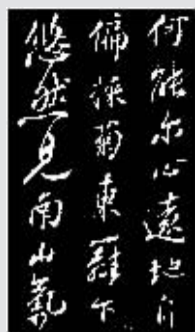 何能尔心遠地自
偏採菊東籬下
悠然見南山氣